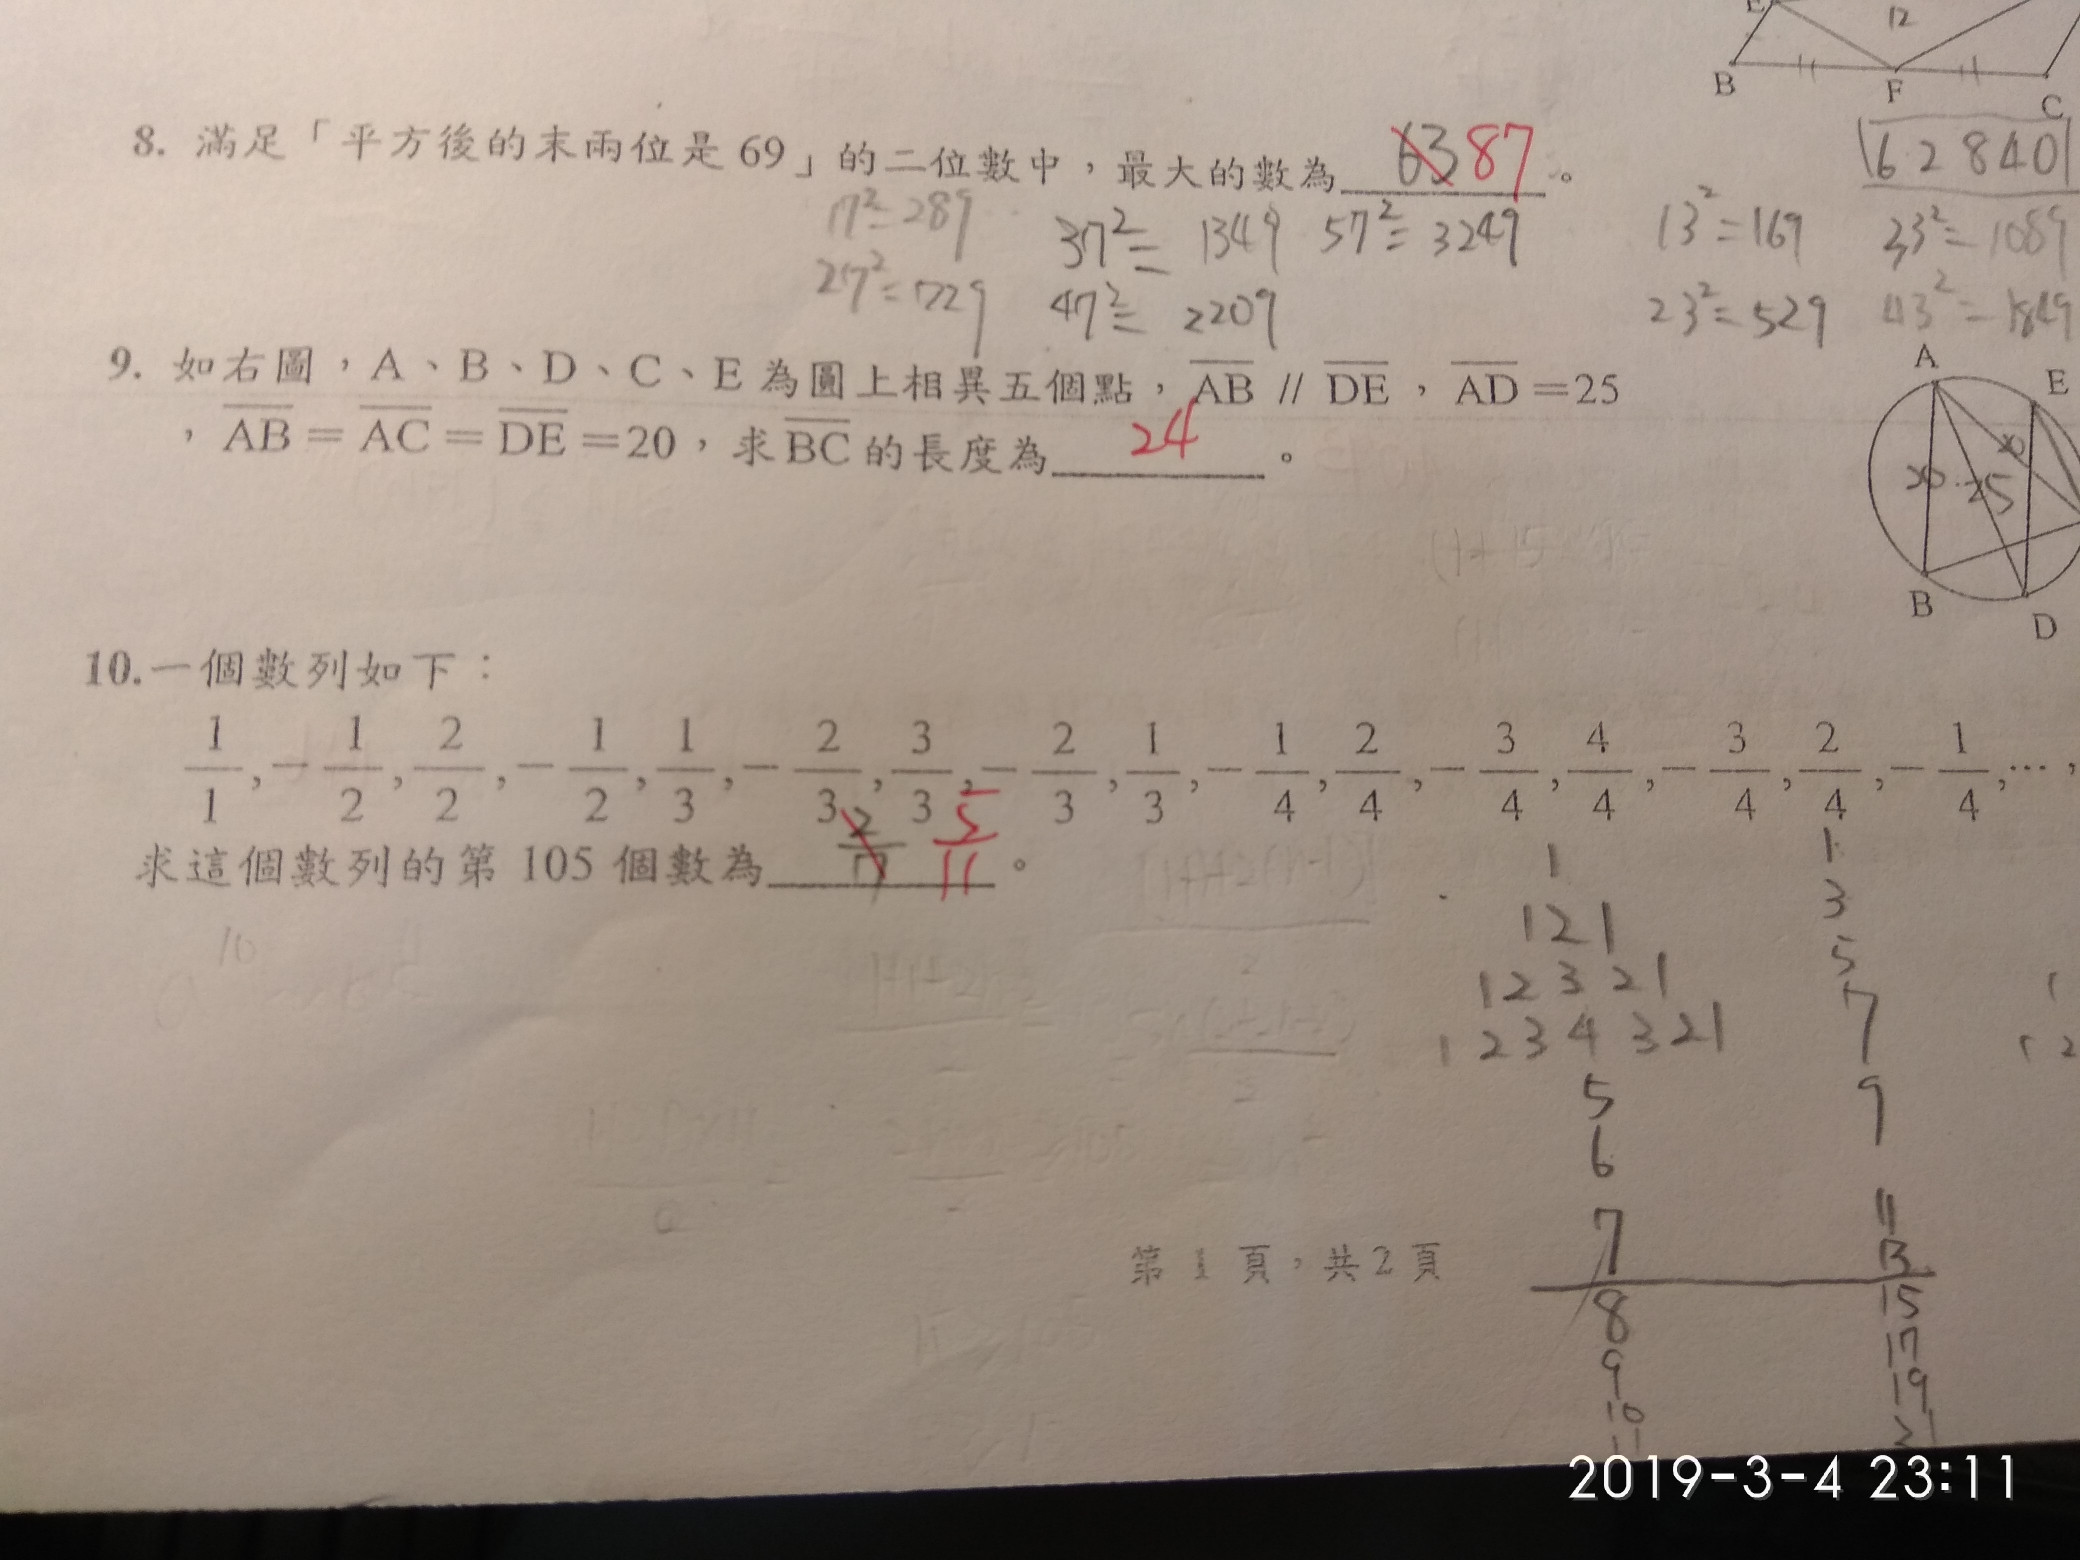 E
12
B F C
8. 滿足「平方後的末兩位是 69」的二位數中，最大的數為 63 87 。
162840
17²=289 37²= 1349 57²= 3249 13²=169 33²=1089
27²=729 47²= 2209 23²=529 43²=1849
9. 如右圖，A、B、D、C、E 為圓上相異五個點，AB // DE，AD=25
，AB=AC=DE=20，求BC的長度為 24 。
A
E
20 25 20
B
D
10.一個數列如下：
1/1, -1/2, 2/2, -1/2, 1/3, -2/3, 3/3, -2/3, 1/3, -1/4, 2/4, -3/4, 4/4, -3/4, 2/4, -1/4, …，
求這個數列的第 105 個數為 5/11 。
1 1
1 2 1 3
1 2 3 2 1 5
1 2 3 4 3 2 1 7
5 9
6
7 11
13
8 15
9 17
10 19
11 21
第 1 頁，共2頁
2019-3-4 23:11